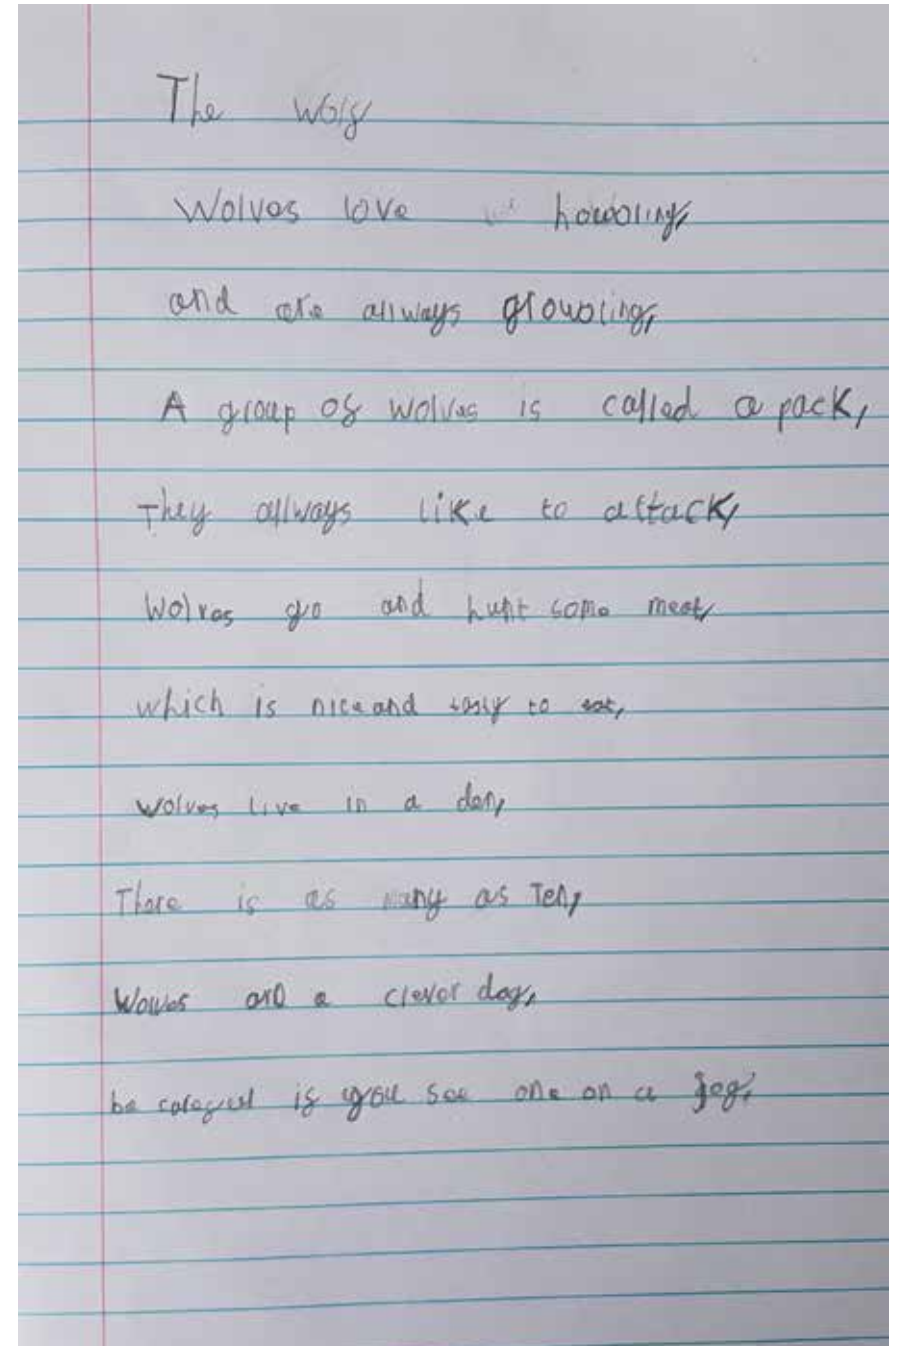 The wolf
Wolves love howoling,
and are allways growoling,
A group of wolves is called a pack,
They allways like to attack,
Wolves go and hunt some meat,
which is nice and tasty to eat,
wolves live in a den,
There is as many as Ten,
Wolves are a clever dog,
be careful if you see one on a jog,